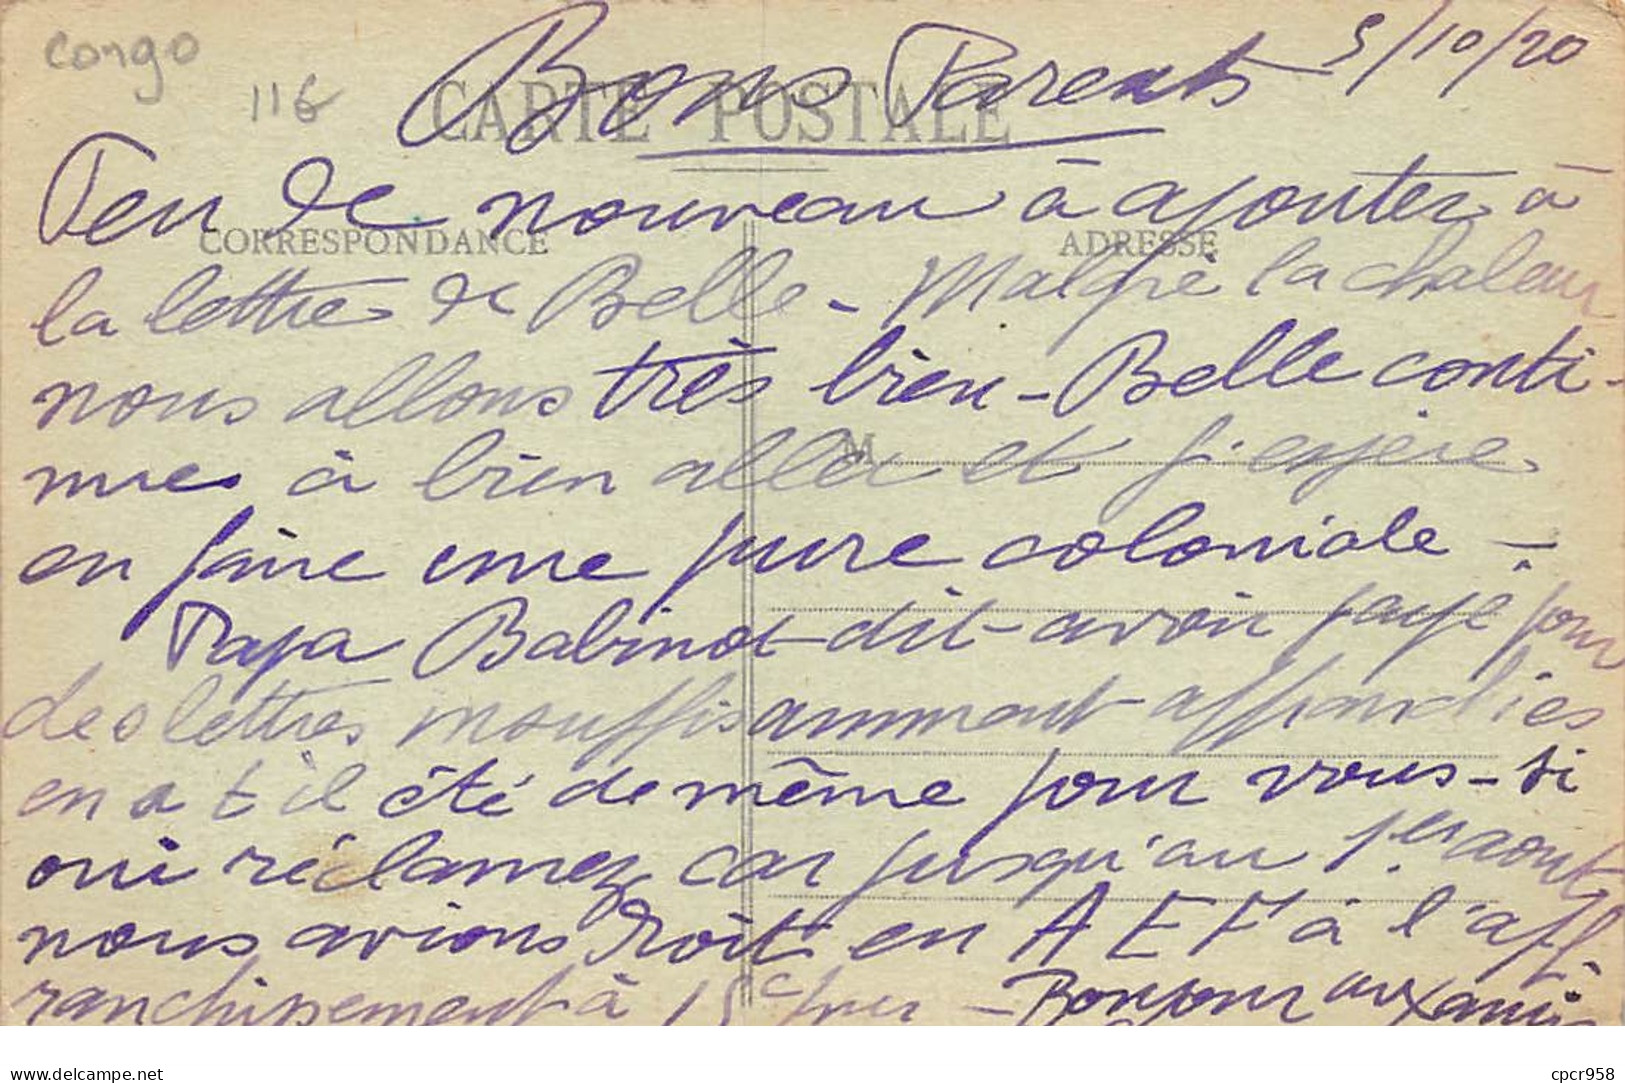 congo
116
5/10/20
CARTE POSTALE
Bons Parents
Peu de nouveau à ajouter à
CORRESPONDANCE
ADRESSE
la lettre de Belle - Malgré la chaleur
nous allons très bien - Belle conti-
M
nue à bien aller et j'espère
en faire une pure coloniale -
Papa Babinot dit avoir payé pour
des lettres insuffisamment affranchies
en a t il été de même pour vous - si
oui réclamez car jusqu'au 1er aout
nous avions droit en AEF à l'aff
ranchissement à 15c - Bonjour aux amis
www.delcampe.net
cpcr958